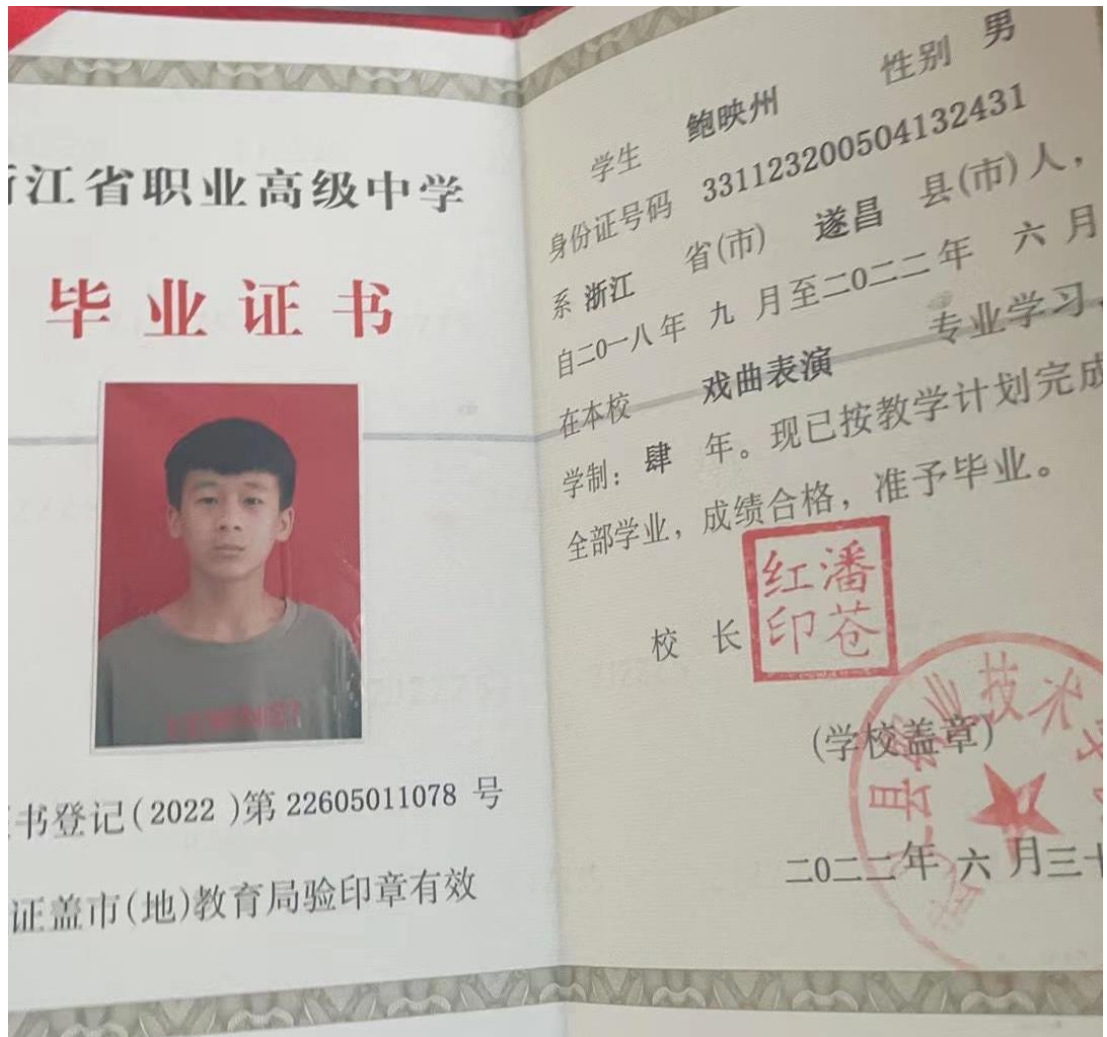 江省职业高级中学
毕业证书
书登记(2022 )第 22605011078 号
证盖市(地)教育局验印章有效
学生 鲍映州 性别 男
身份证号码 331123200504132431
系 浙江 省(市) 遂昌 县(市)人,
自二0一八年 九 月至二0二二年 六 月
在本校 戏曲表演 专业学习,
学制: 肆 年。现已按教学计划完成
全部学业,成绩合格,准予毕业。
校 长
红潘
印苍
(学校盖章)
县职业技术
二0二二年 六 月三十